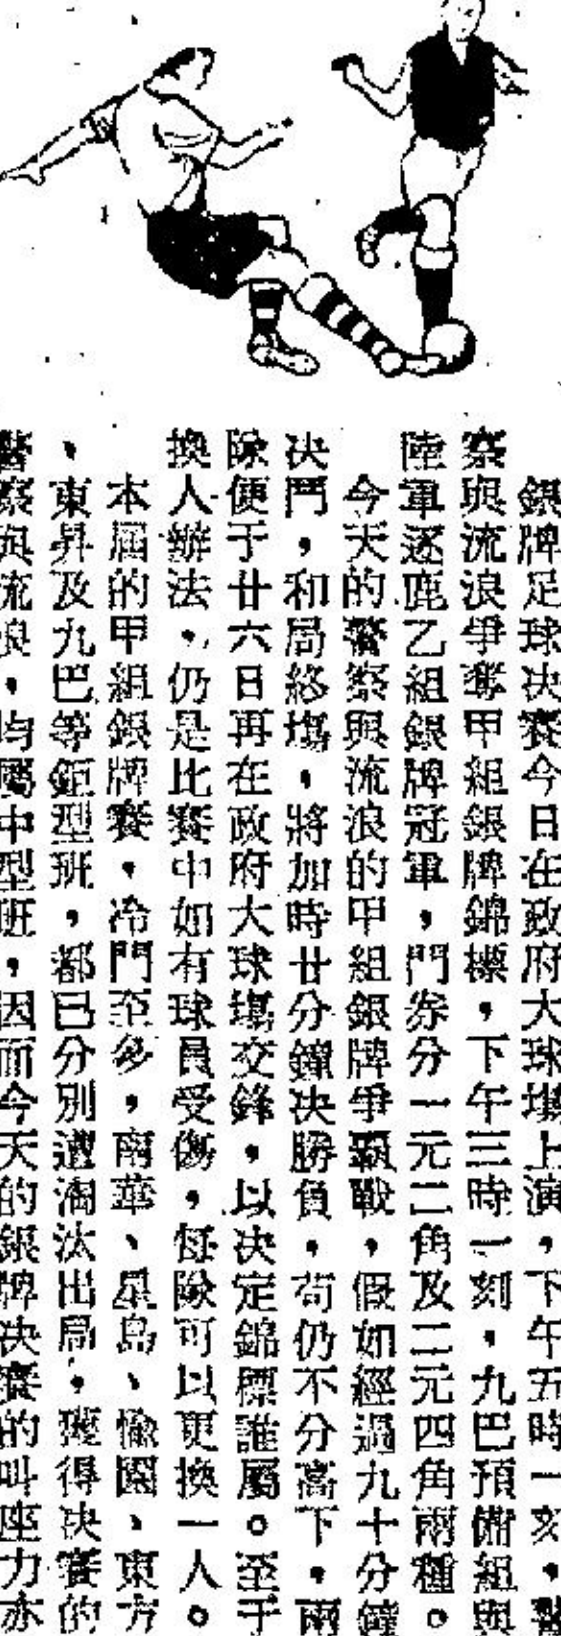 銀牌足球决賽今日在政府大球塲上演，下午五時一刻，警
察與流浪爭奪甲組銀牌錦標，下午三時一刻，九巴預備組與
陸軍逐鹿乙組銀牌冠軍，門券分一元二角及二元四角兩種。
今天的警察與流浪的甲組銀牌爭霸戰，假如經過九十分鐘
决鬥，和局終塲，將加時廿分鐘决勝負，苟仍不分高下，兩
隊便于廿六日再在政府大球塲交鋒，以决定錦標誰屬。至于
換人辦法，仍是比賽中如有球員受傷，每隊可以更換一人。
本屆的甲組銀牌賽，冷門至多，南華、星島、愉園、東方
、東昇及九巴等鉅型班，都已分別遭淘汰出局，獲得决賽的
警察與流浪，均屬中型班，因而今天的銀牌决賽的叫座力亦